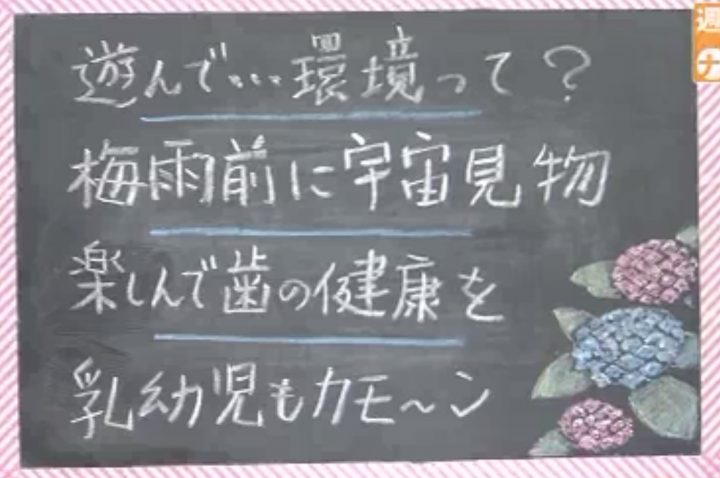 遊んで…環境って？
梅雨前に宇宙見物
楽しんで歯の健康を
乳幼児もカモ〜ン
週
ナ